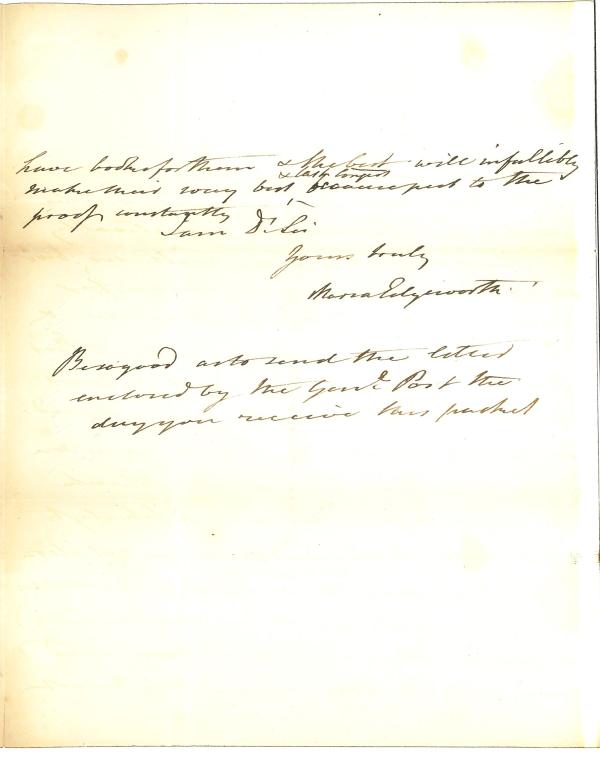 have books for them & the best will infallibly
& last longest
make their way best because put to the
proof constantly
I am Dr Sir
Yours truly
Maria Edgeworth
Be so good as to send the letter
enclosed by the Genl Post the
day you receive this packet